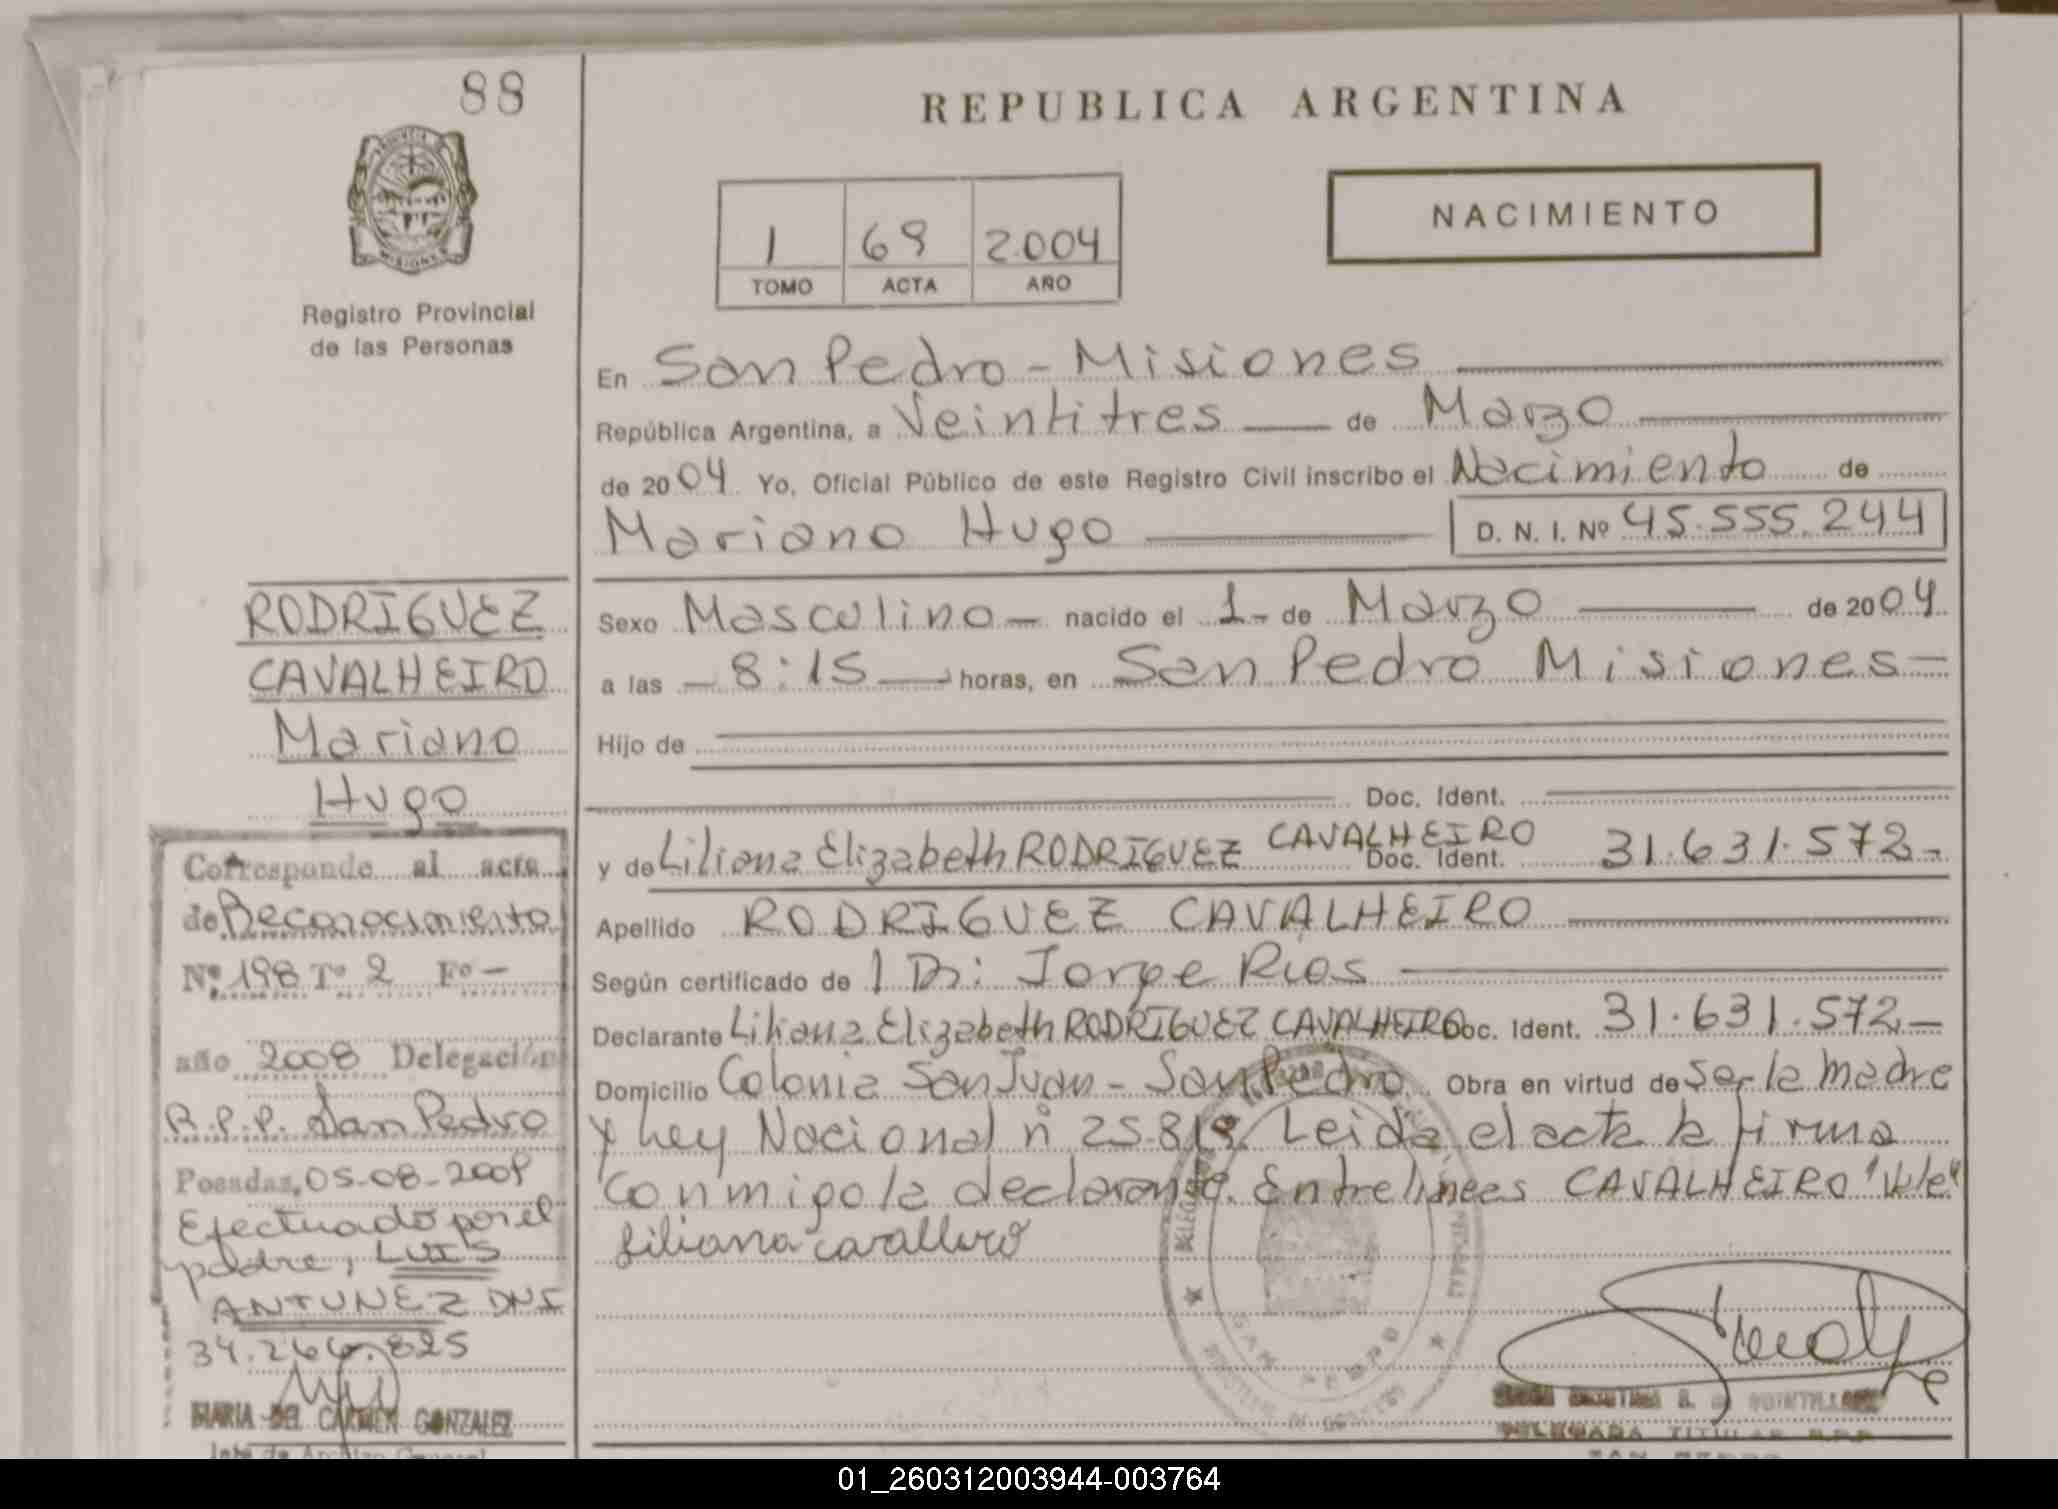 88
REPUBLICA ARGENTINA
NACIMIENTO
1 69 2.004
TOMO ACTA AÑO
PROVINCIA DE
MISIONES
Registro Provincial
de las Personas
En San Pedro - Misiones
República Argentina, a Veintitres de Marzo
de 2004 Yo, Oficial Público de este Registro Civil inscribo el Nacimiento de
Mariano Hugo D. N. I. Nº 45.555.244
Sexo Masculino - nacido el 1- de Marzo de 2004
a las - 8:15 - horas, en San Pedro Misiones -
Hijo de
Doc. Ident.
y de Liliana Elizabeth RODRIGUEZ CAVALHEIRO Doc. Ident. 31.631.572-
Apellido RODRIGUEZ CAVALHEIRO
Según certificado de 1 Dr: Jorge Rios
Declarante Liliana Elizabeth RODRIGUEZ CAVALHEIRO Doc. Ident. 31.631.572-
Domicilio Colonia San Juan - San Pedro Obra en virtud de Ser la madre
y Ley Nacional nº 25.819. Leida el acta la firma
conmigo la declarante. Entrelineas CAVALHEIRO "Vale"
Liliana cavallero
RODRIGUEZ
CAVALHEIRO
Mariano
Hugo
Corresponde al acta
de Reconocimiento
Nº 198 Tº 2 Fº -
año 2008 Delegación
R.P.P. San Pedro
Posadas, 05-08-2008
Efectuado por el
padre, LUIS
ANTUNEZ DNI
34.266.825
MARIA DEL CARMEN GONZALEZ
Jefe de Archivo General
DELEGADA TITULAR R.P.P.
SAN PEDRO
01_260312003944-003764